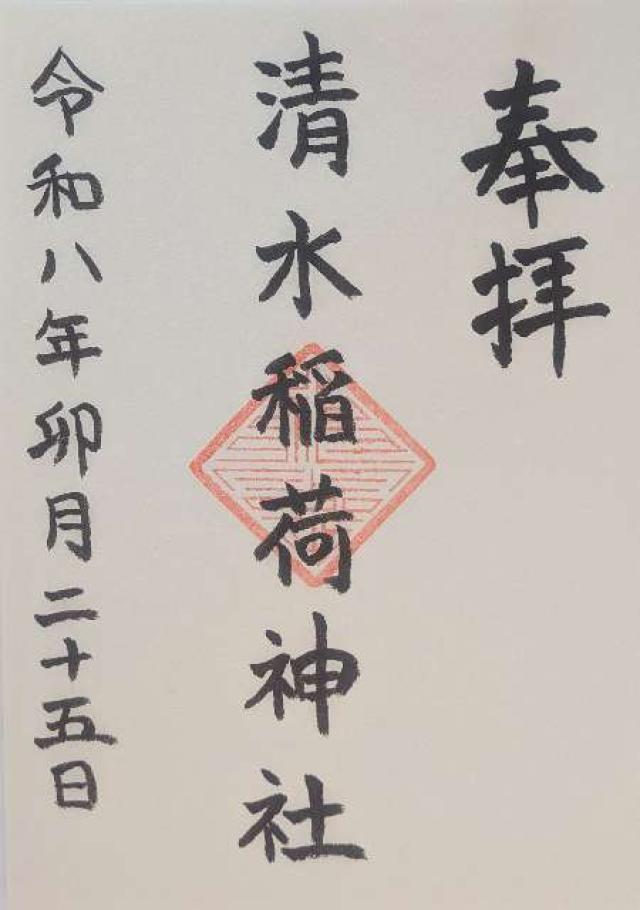 奉拝
清水稲荷神社
令和八年卯月二十五日